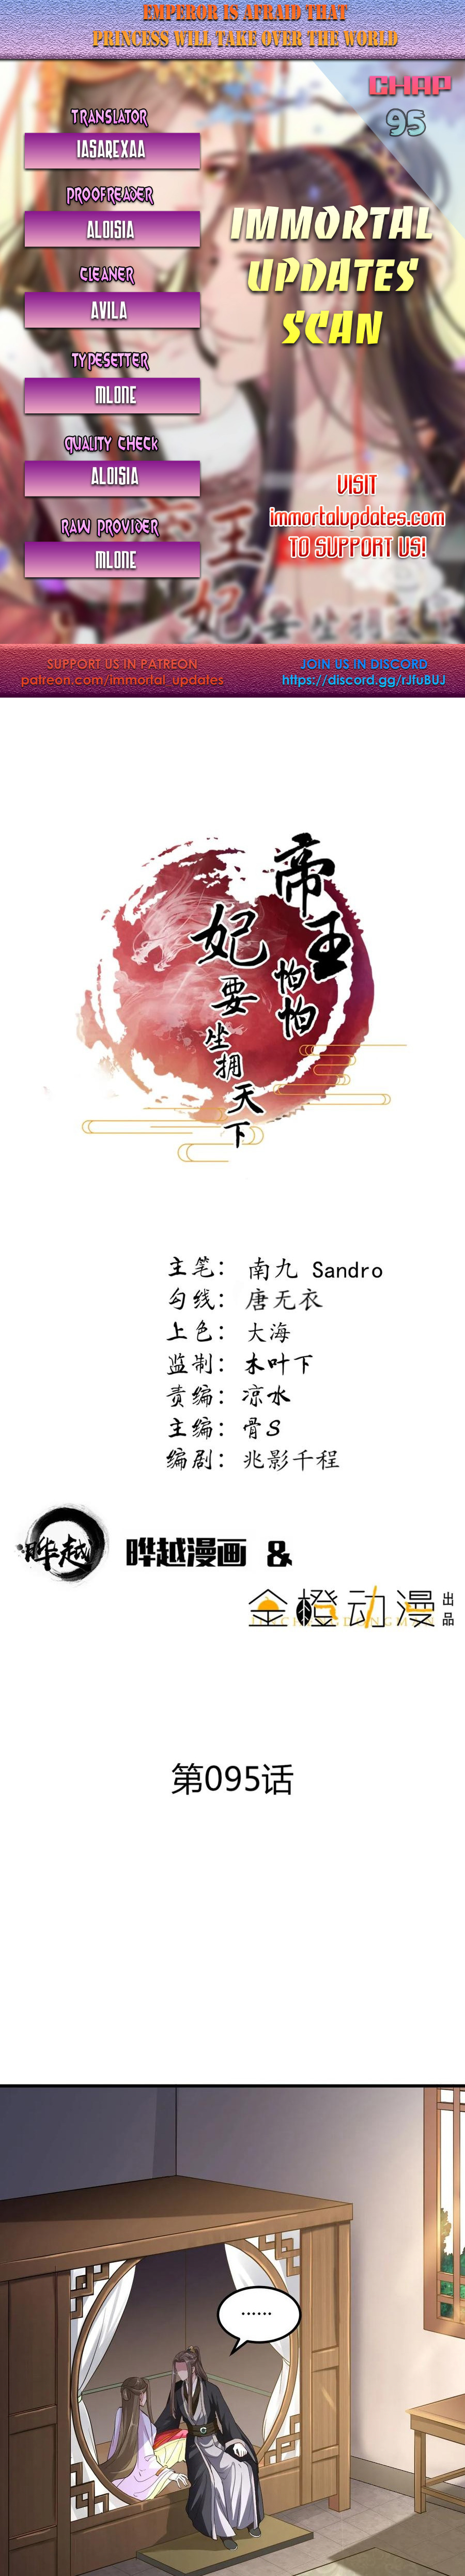 EMPEROR IS AFRAID THAT
PRINCESS WILL TAKE OVER THE WORLD
CHAP
95
TRANSLATOR
IASAREXAA
PROOFREADER
ALOISIA
CLEANER
AVILA
TYPESETTER
MLONE
QUALITY CHECK
ALOISIA
RAW PROVIDER
MLONE
IMMORTAL
UPDATES
SCAN
VISIT
immortalupdates.com
TO SUPPORT US!
SUPPORT US IN PATREON
patreon.com/immortal_updates
JOIN US IN DISCORD
https://discord.gg/rJfuBUJ
帝王
怕怕
妃
要
坐拥
天下
主笔：南九 Sandro
勾线：唐无衣
上色：大海
监制：木叶下
责编：凉水
主编：骨S
编剧：兆影千程
晔越
晔越漫画 &
金橙动漫
出品
第095话
......